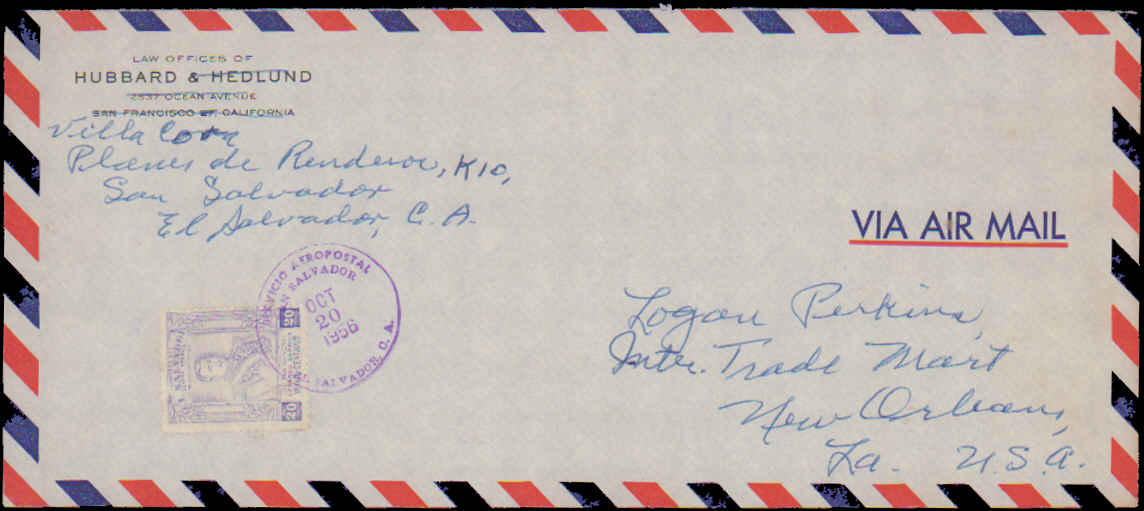 LAW OFFICES OF
HUBBARD & HEDLUND
2537 OCEAN AVENUE
SAN FRANCISCO 27, CALIFORNIA
Villa Cora
Planes de Renderos, K10,
San Salvador
El Salvador, C. A.
VIA AIR MAIL
SERVICIO AEROPOSTAL
SAN SALVADOR
OCT
20
1956
EL SALVADOR, C. A.
EL SALVADOR
20
20
Logan Perkins,
Inter. Trade Mart
New Orleans,
La. U.S.A.